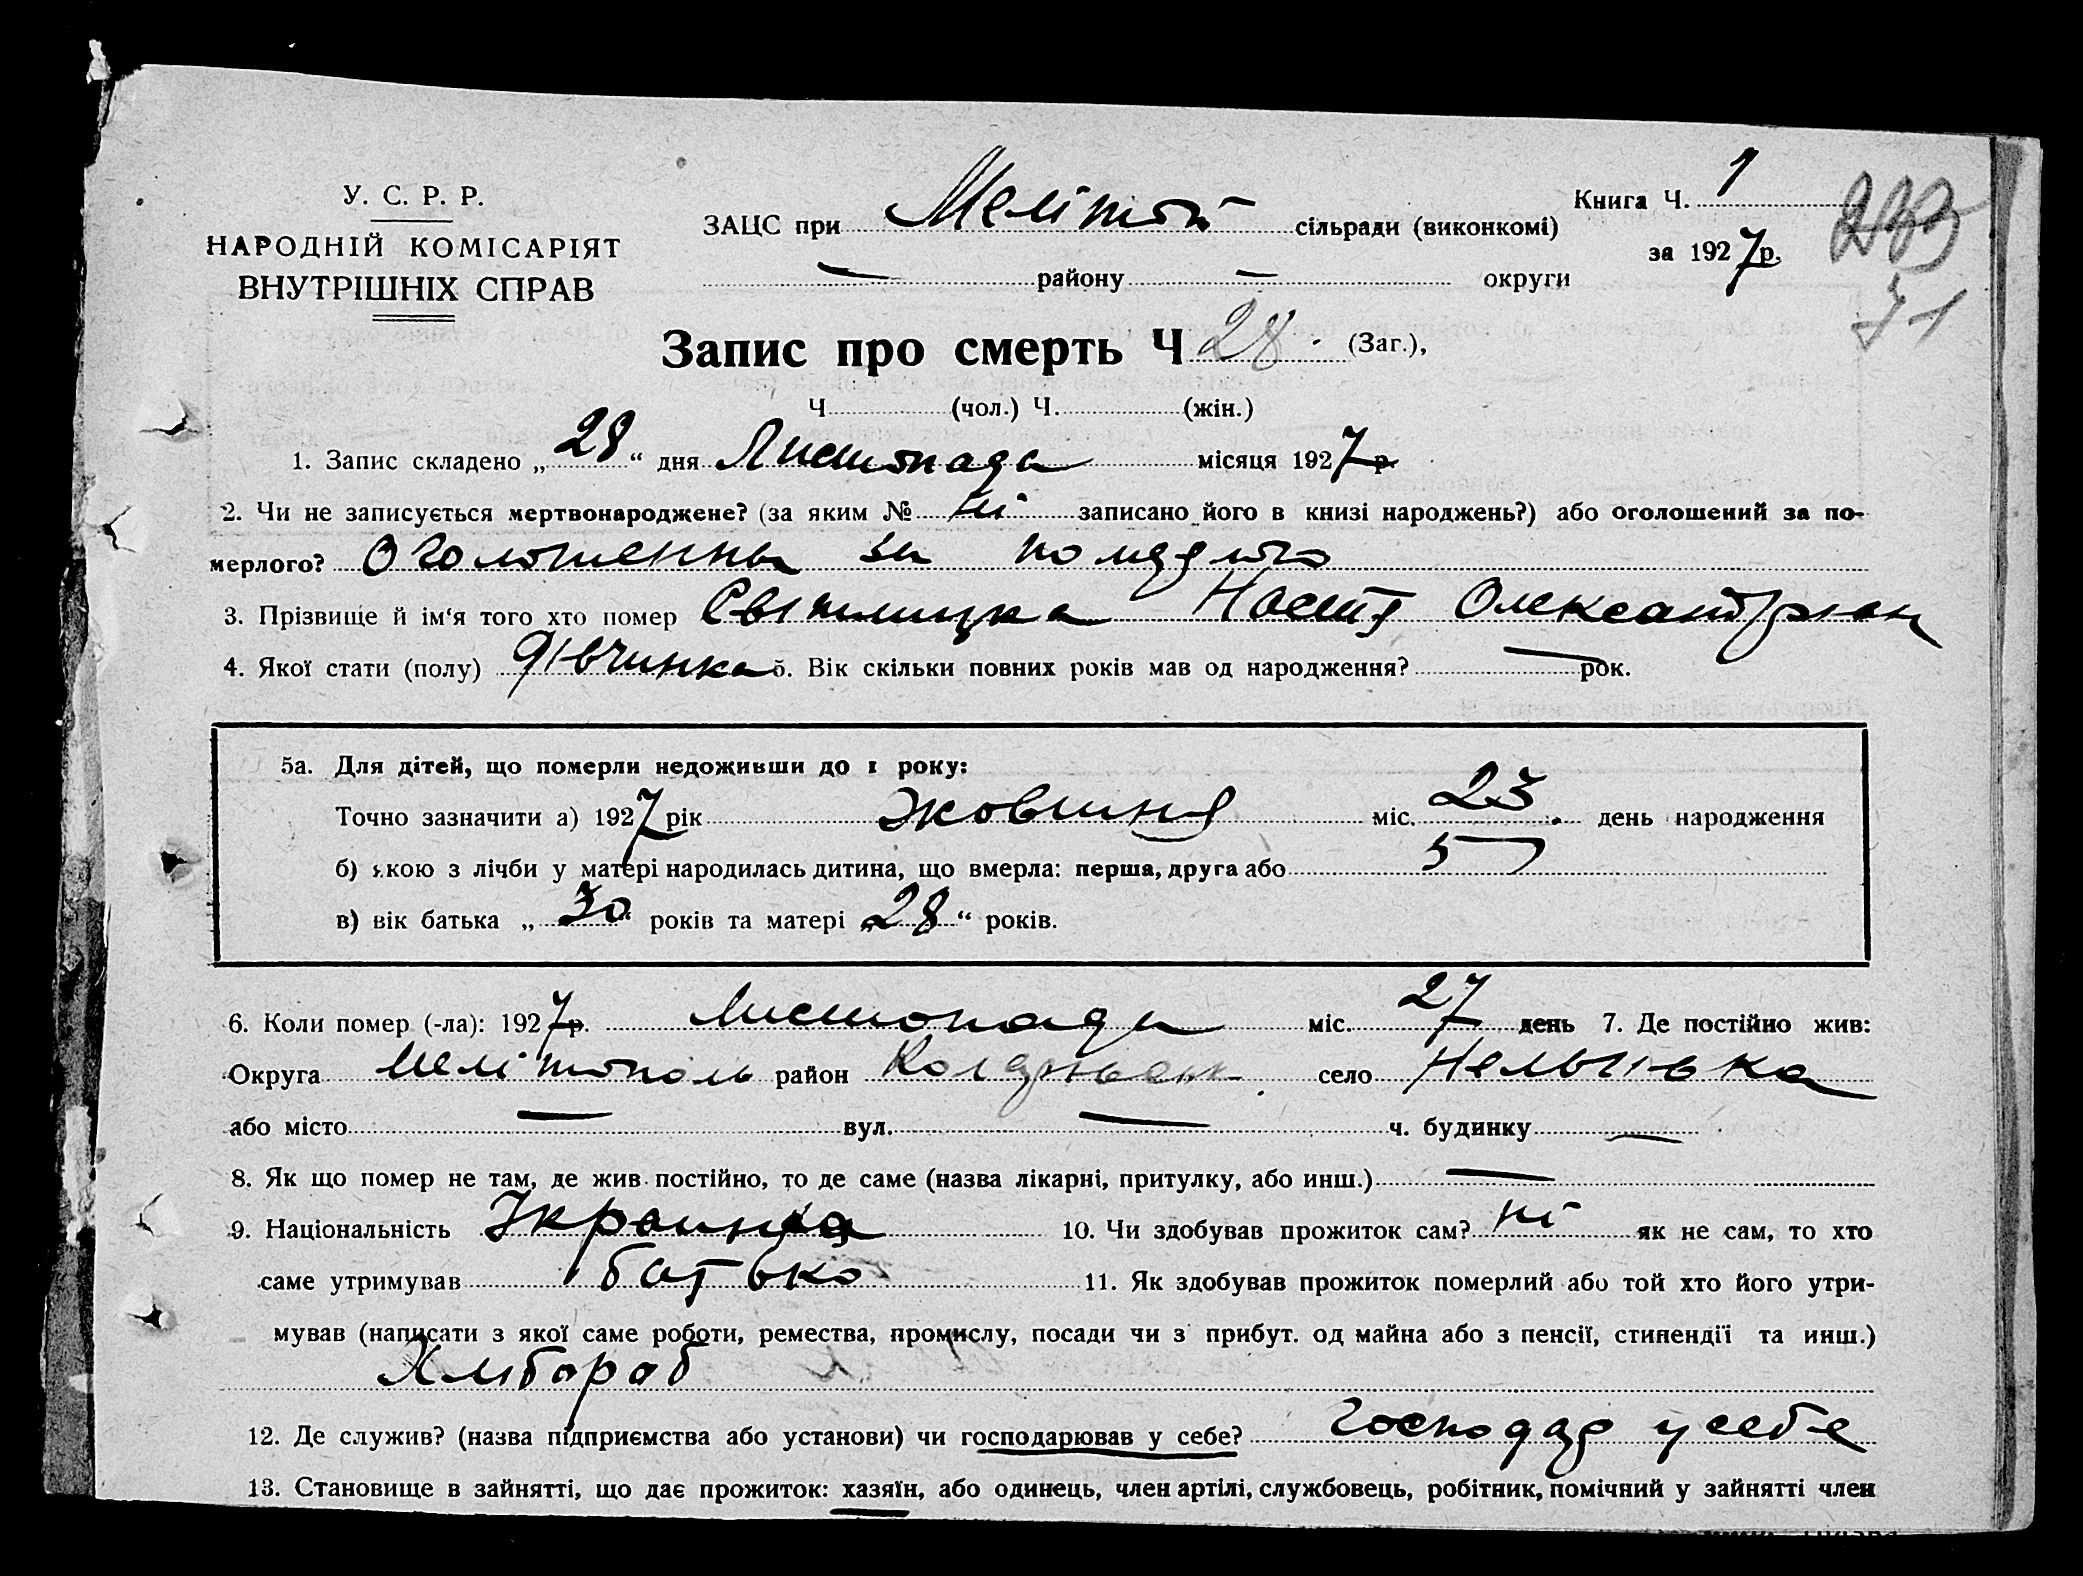 У. С. Р. Р.
НАРОДНІЙ КОМІСАРІЯТ
ВНУТРІШНІХ СПРАВ
ЗАЦС при сільради (виконкомі)
району округи
Книга Ч. 1
за 1927 р.
71
Запис про смерть Ч 28. (Заг.),
Ч (чол.) Ч. (жін.)
1. Запис складено „28“ дня Листопада місяця 1927 р.
2. Чи не записується мертвонароджене? (за яким № ні записано його в книзі народжень?) або оголошений за по-
мерлого? за
3. Прізвище й ім‘я того хто помер Світлицка
4. Якої стати (полу) дівчинка 5. Вік скільки повних років мав од народження? — рок.
5а. Для дітей, що померли недоживши до 1 року:
Точно зазначити а) 1927 рік жовтня міс. 23 день народження
б) якою з лічби у матері народилась дитина, що вмерла: перша, друга або 5
в) вік батька „30“ років та матері „28“ років.
6. Коли помер (-ла): 1927 р. Листопада міс. 27 день 7. Де постійно жив:
Округа Мелітополь район село
або місто — вул. — ч. будинку —
8. Як що помер не там, де жив постійно, то де саме (назва лікарні, притулку, або инш.) —
9. Національність Украинка 10. Чи здобував прожиток сам? ні як не сам, то хто
саме утримував батько 11. Як здобував прожиток померлий або той хто його утри-
мував (написати з якої саме роботи, ремества, промислу, посади чи з прибут. од майна або з пенсії, стипендії та инш.)
Хлібороб
12. Де служив? (назва підприємства або установи) чи господарював у себе? у себе
13. Становище в зайнятті, що дає прожиток: хазяїн, або одинець, член артілі, службовець, робітник, помічний у зайнятті член